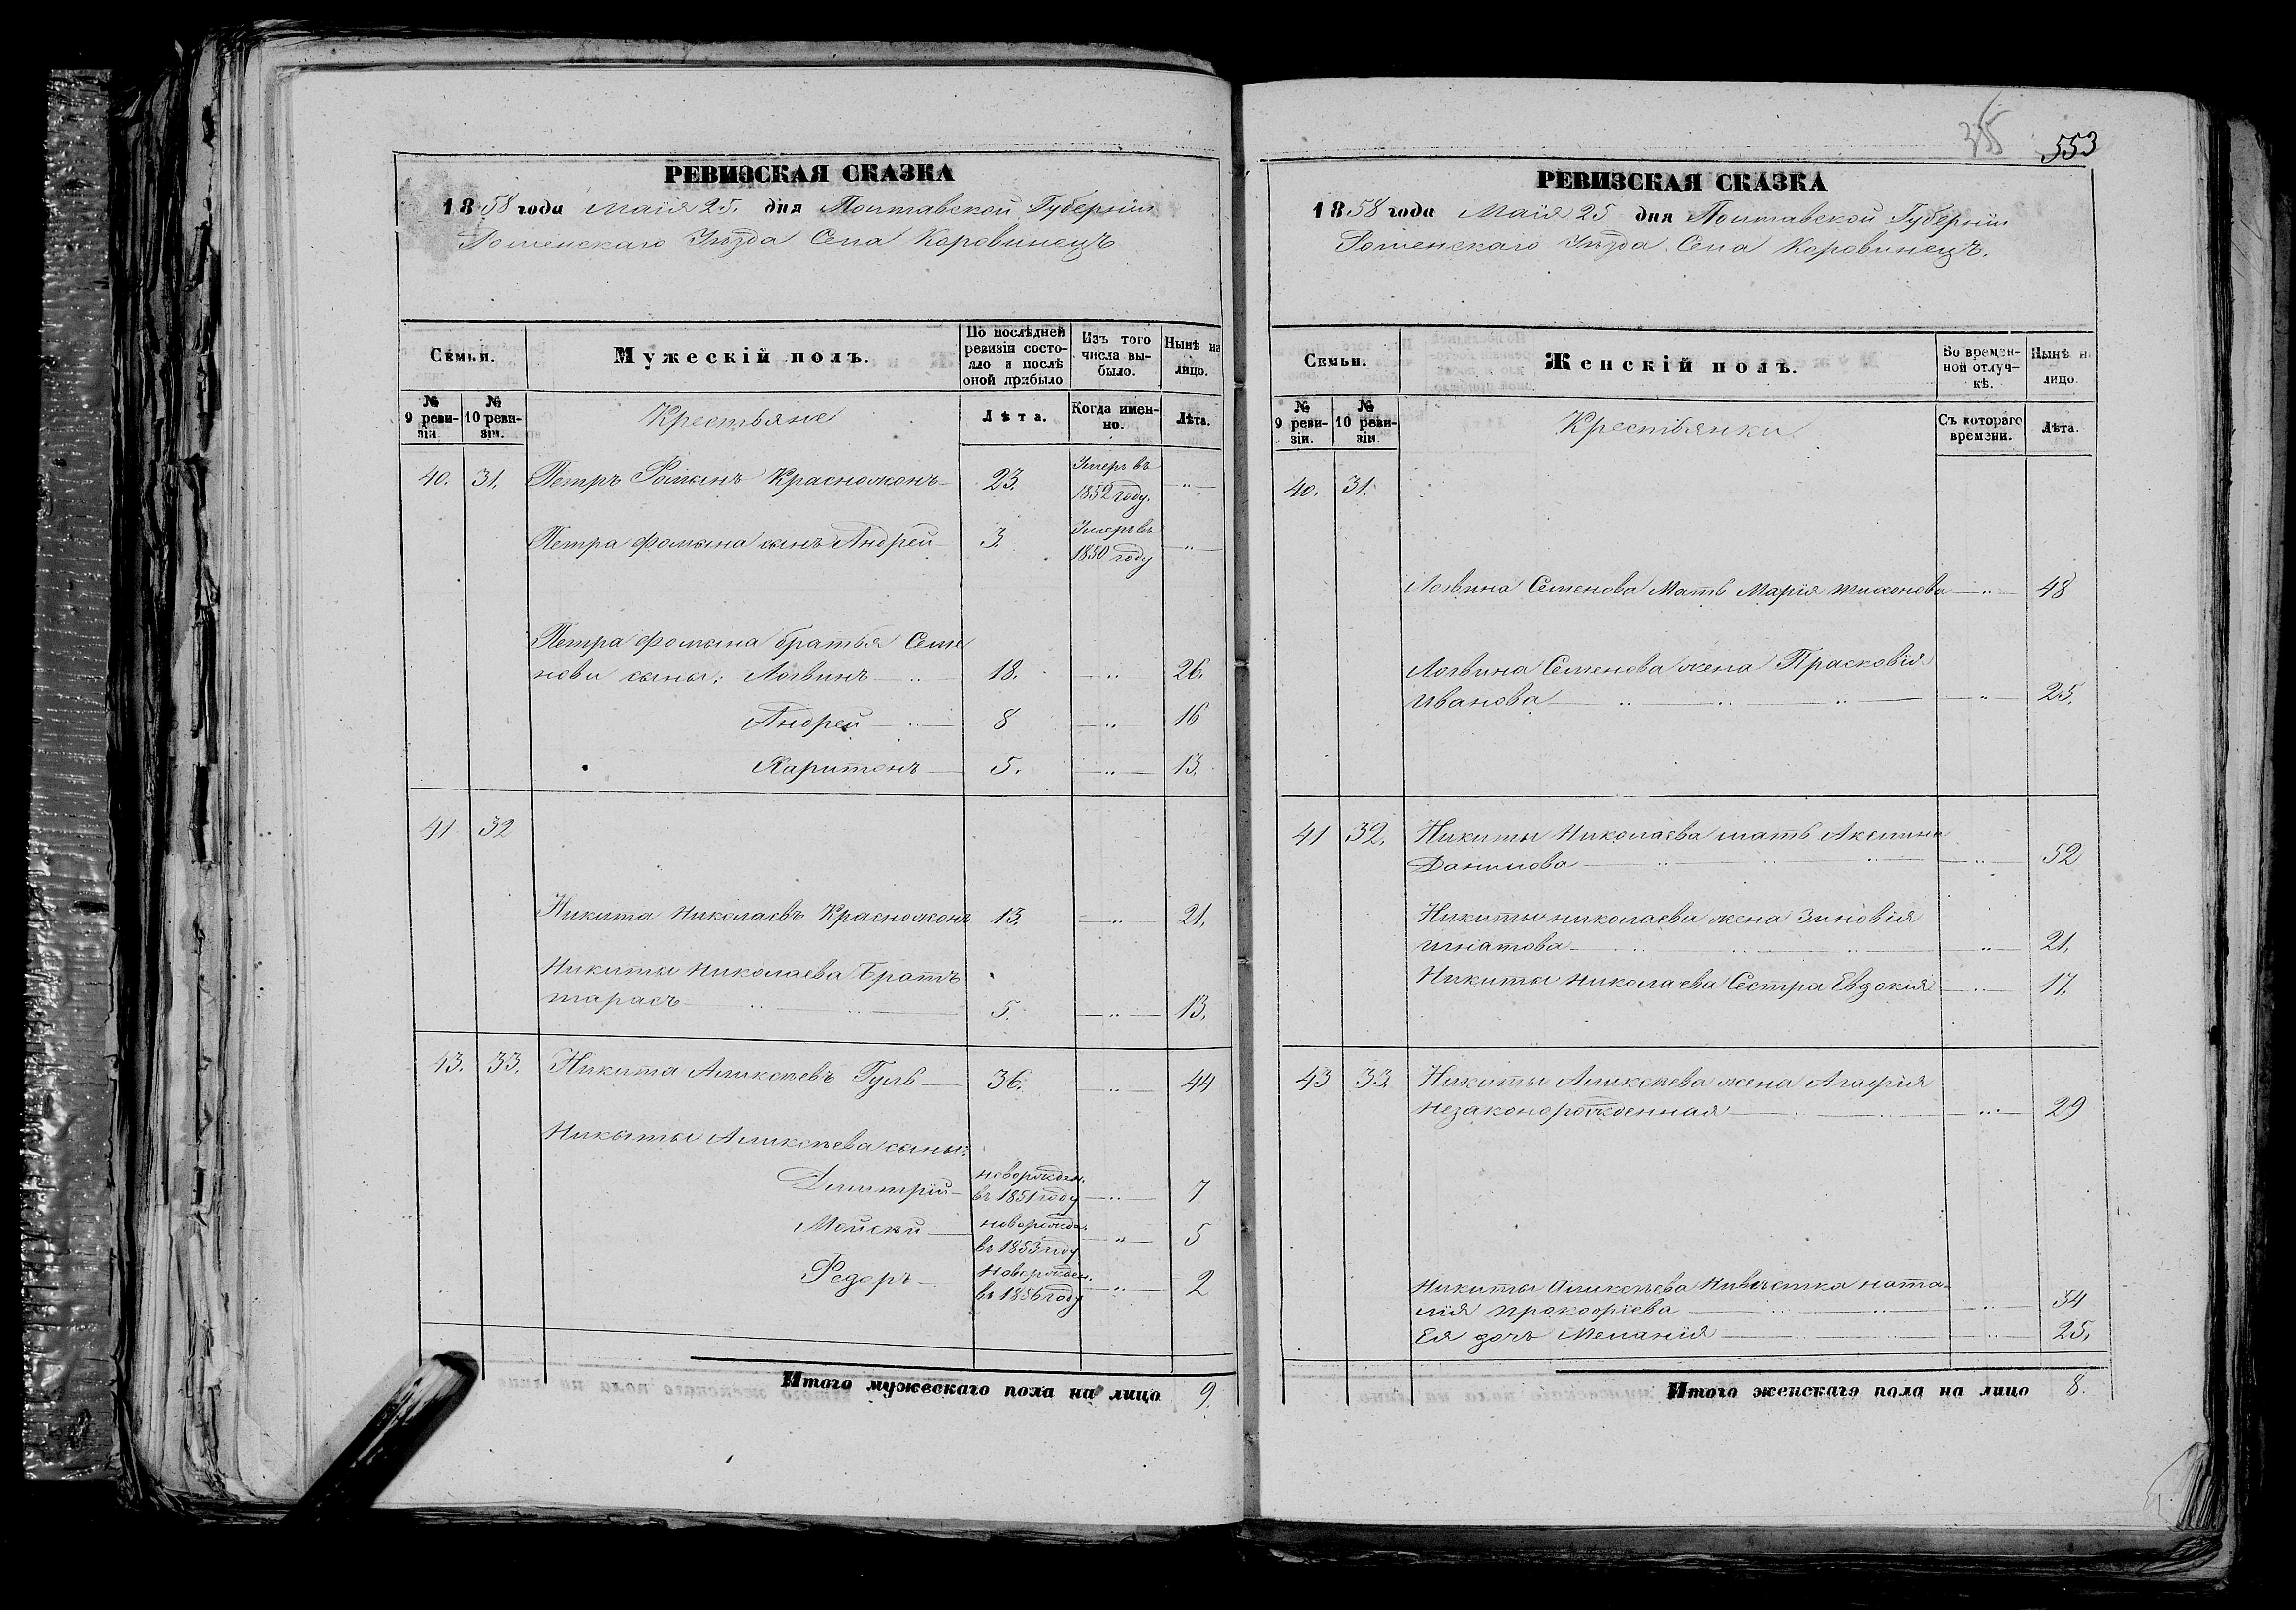 РЕВИЗСКАЯ СКАЗКА
1858 года Маія 25. дня Полтавской Губерніи
Роменскаго Уѣзда Села Коровинецъ
Семьи.
Мужескій полъ.
По послѣдней ревизіи состояло и послѣ оной прибыло
Изъ того числа выбыло.
Нынѣ на лицо.
№ 9 ревизіи.
№ 10 ревизіи.
Крестьяне
Лѣта.
Когда именно.
Лѣта.
40. 31. Петръ Фоминъ Красножонъ 23. Умеръ въ 1852 году. — „ —
Петра Фомина сынъ Андрей 3. Умеръ въ 1850 году — „ —
Петра Фомина братья Семе
нови сыны: Логвинъ — „ 18. — „ 26.
Андрей — „ — 8 — „ 16
Харитонъ — 5. — „ — 13.
41 32
Никита Николаевъ Красножонъ 13. — „ 21,
Никиты Николаева Братъ
тарасъ — „ — „ — 5. — „ — 13,
43. 33. Никита Аликсѣевъ Гуль — 36. — „ — 44
Никиты Аликсѣева сыны:
Димитрій — новорожден. въ 1851 году — „ — 7
Мойсѣй — новорожден. въ 1853 году — „ — 5
Федоръ — новорожден. въ 1856 году — „ — 2
Итого мужескаго пола на лицо 9.
355 553
РЕВИЗСКАЯ СКАЗКА
1858 года Маія 25 дня Полтавской Губерніи
Роменскаго Уѣзда Села Коровинецъ.
Семьи.
Женскій полъ.
Во временной отлучкѣ.
Нынѣ н лицо.
№ 9 ревизіи.
№ 10 ревизіи.
Крестьянки
Съ котораго времени.
Лѣта.
40. 31.
Логвина Семенова Мать Марія тихонова — „ — 48
Логвина Семенова жена Прасковія
Иванова — „ — „ — „ — 25.
41 32. Никиты Николаева мать Акелина
Данилова — „ — „ — „ — 52
Никиты николаева жена Зиновія
игнатова — „ — „ — 21,
Никиты Николаева Сестра Евдокія — „ — 17,
43 33. Никиты Аликсѣева жена Агафія
незаконорожденная — „ — 29
Никиты Аликсѣева Нивѣстка ната-
лія прокофіева — „ — 34
Ея дочь Меланія — „ — 25,
Итого женскаго пола на лицо 8.